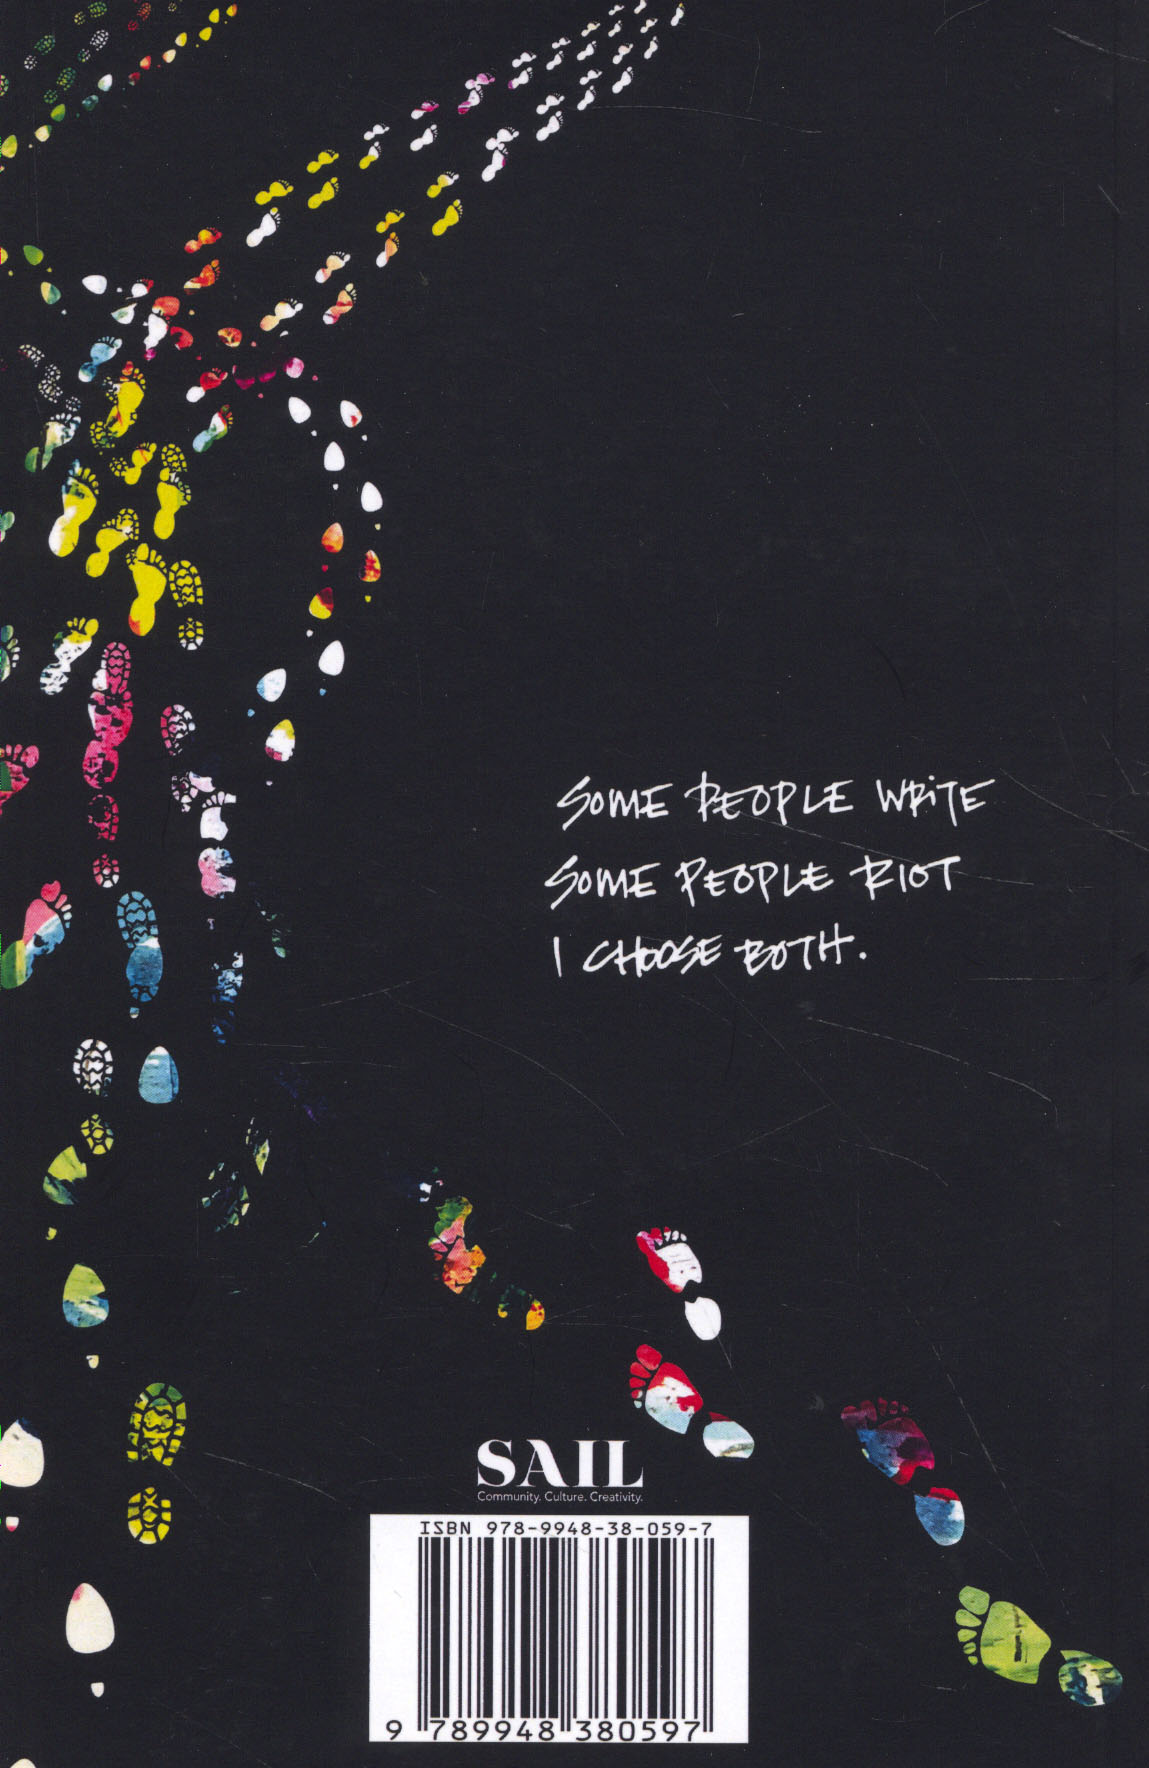 SOME PEOPLE WRITE
SOME PEOPLE RIOT
I CHOOSE BOTH.
SAIL
Community. Culture. Creativity.
ISBN 978-9948-38-059-7
9 789948 380597